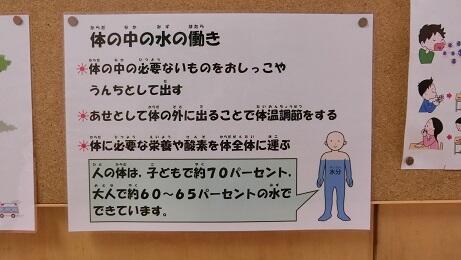 体の中の水の働き
＊体の中の必要ないものをおしっこや
うんちとして出す
＊あせとして体の外に出ることで体温調節をする
＊体に必要な栄養や酸素を体全体に運ぶ
人の体は、子どもで約70パーセント、
大人で約60～65パーセントの水で
できています。
水分